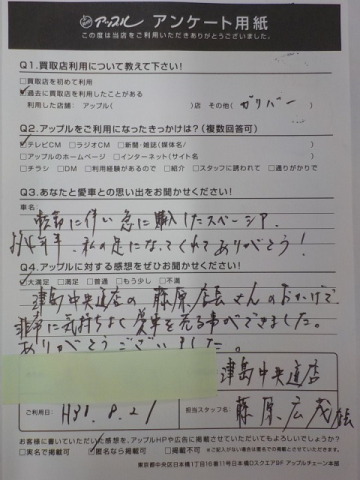 アップル アンケート用紙
この度は当店をご利用いただきありがとうございました。
Q1.買取店利用について教えて下さい!
□買取店を初めて利用
☑過去に買取店を利用したことがある
利用した店舗: アップル( )店 その他( ガリバー
Q2.アップルをご利用になったきっかけは?(複数回答可)
☑テレビCM □ラジオCM □新聞・雑誌(媒体名/
□アップルのホームページ □インターネット(サイト名
□チラシ □DM □利用経験があるので □紹介 □スタッフに誘われて □通りがかりで
Q3.あなたと愛車との思い出をお聞かせください!
車名:
転勤に伴い急に購入したスペーシア、
約4年半、私の足になってくれてありがとう!
Q4.アップルに対する感想をぜひお聞かせください!
☑大満足 □満足 □普通 □もう少し □不満
津島中央通店の藤原店長さんのおかげで
非常に気持ちよく愛車を売る事ができました。
ありがとうございました。
津島中央通店
ご利用日: H31.8.21
担当スタッフ名: 藤原広茂店長
お客様に書いていただいた感想を、アップルHPや広告に掲載させていただいてもよろしいでしょうか?
□実名で掲載可 ☑匿名なら掲載可 □不可
※ご記入がない場合は匿名での掲載とさせていただきます。
東京都中央区日本橋1丁目16番11号日本橋DスクエアBF アップルチェーン本部